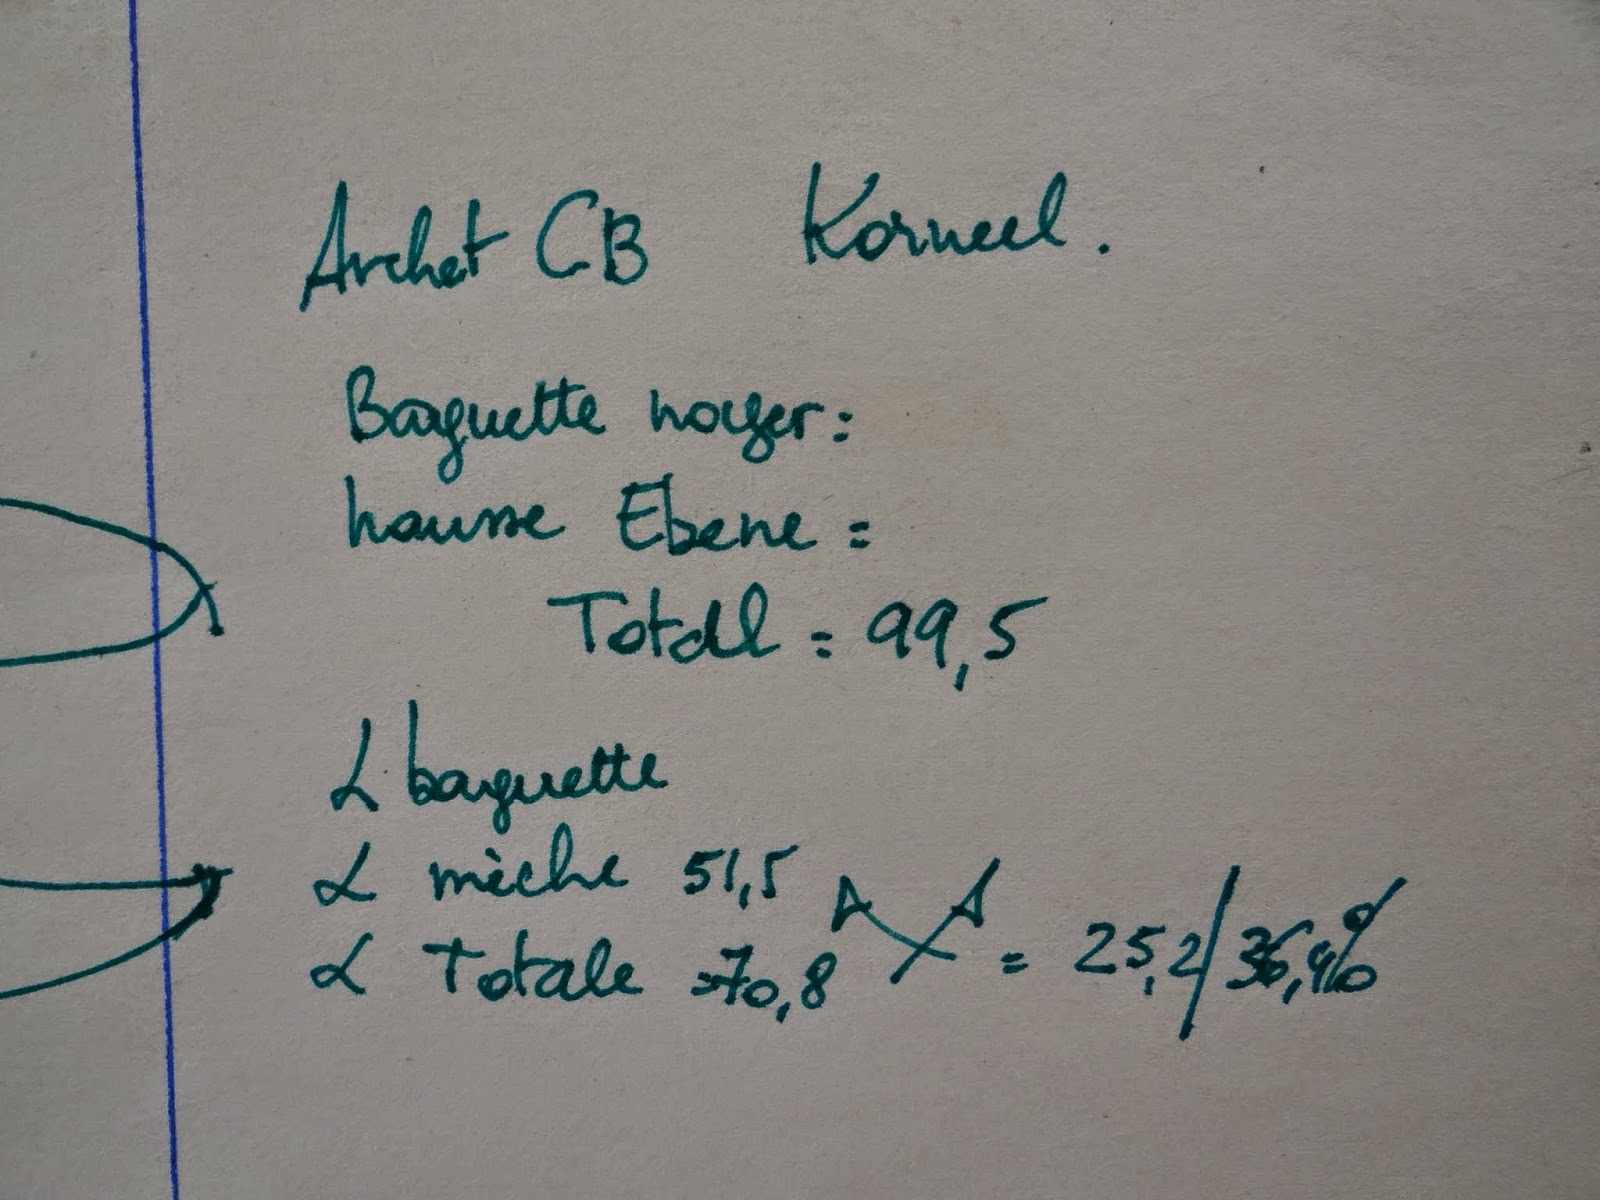 Archet CB Korneel.
Baguette noyer :
hausse Ebene =
Total = 99,5
L baguette
L mèche 51,5
L Totale = 70,8 = 25,2/36,4%